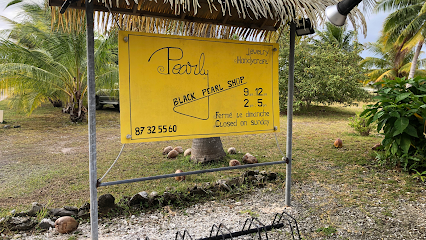 Pearly
Jewellery
Handycrafts
BLACK PEARL SHOP
9 . 12
2 . 5
Fermé le dimanche
Closed on Sunday
87 32 55 60